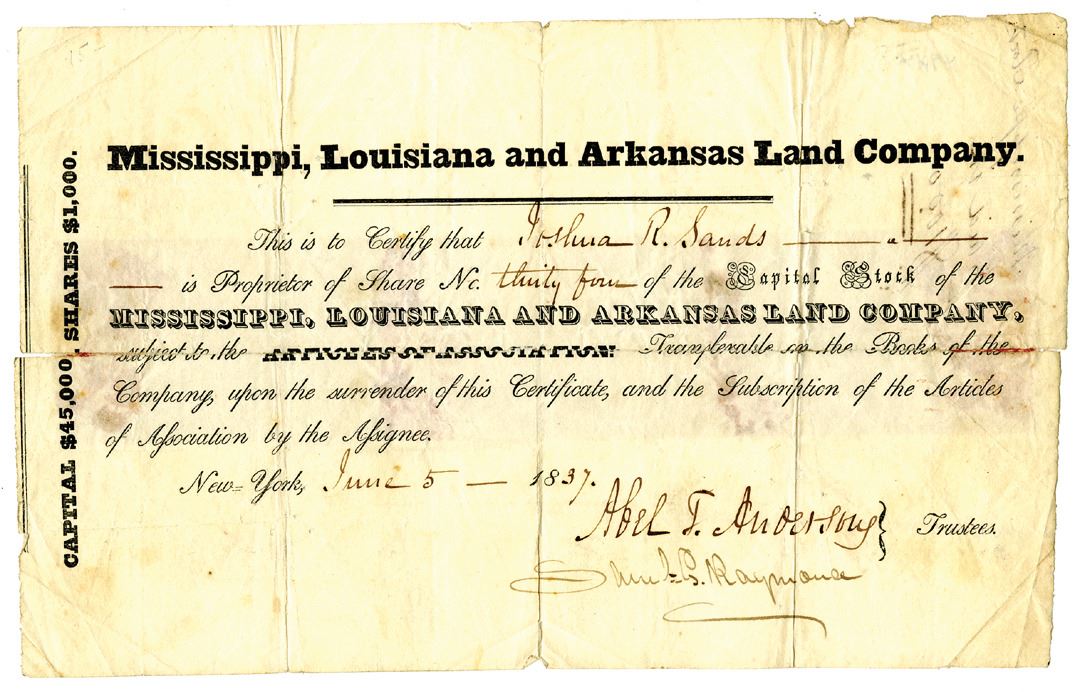 CAPITAL $45,000, SHARES $1,000.
Mississippi, Louisiana and Arkansas Land Company.
This is to Certify that Joshua R. Sands
is Proprietor of Share No. thirty four of the Capital Stock of the
MISSISSIPPI, LOUISIANA AND ARKANSAS LAND COMPANY,
subject to the ARTICLES OF ASSOCIATION: Transferable on the Books of the
Company, upon the surrender of this Certificate, and the Subscription of the Articles
of Association by the Assignee.
New-York, June 5 — 1837.
Abel T. Anderson
Trustees.
Saml. G. Raymond